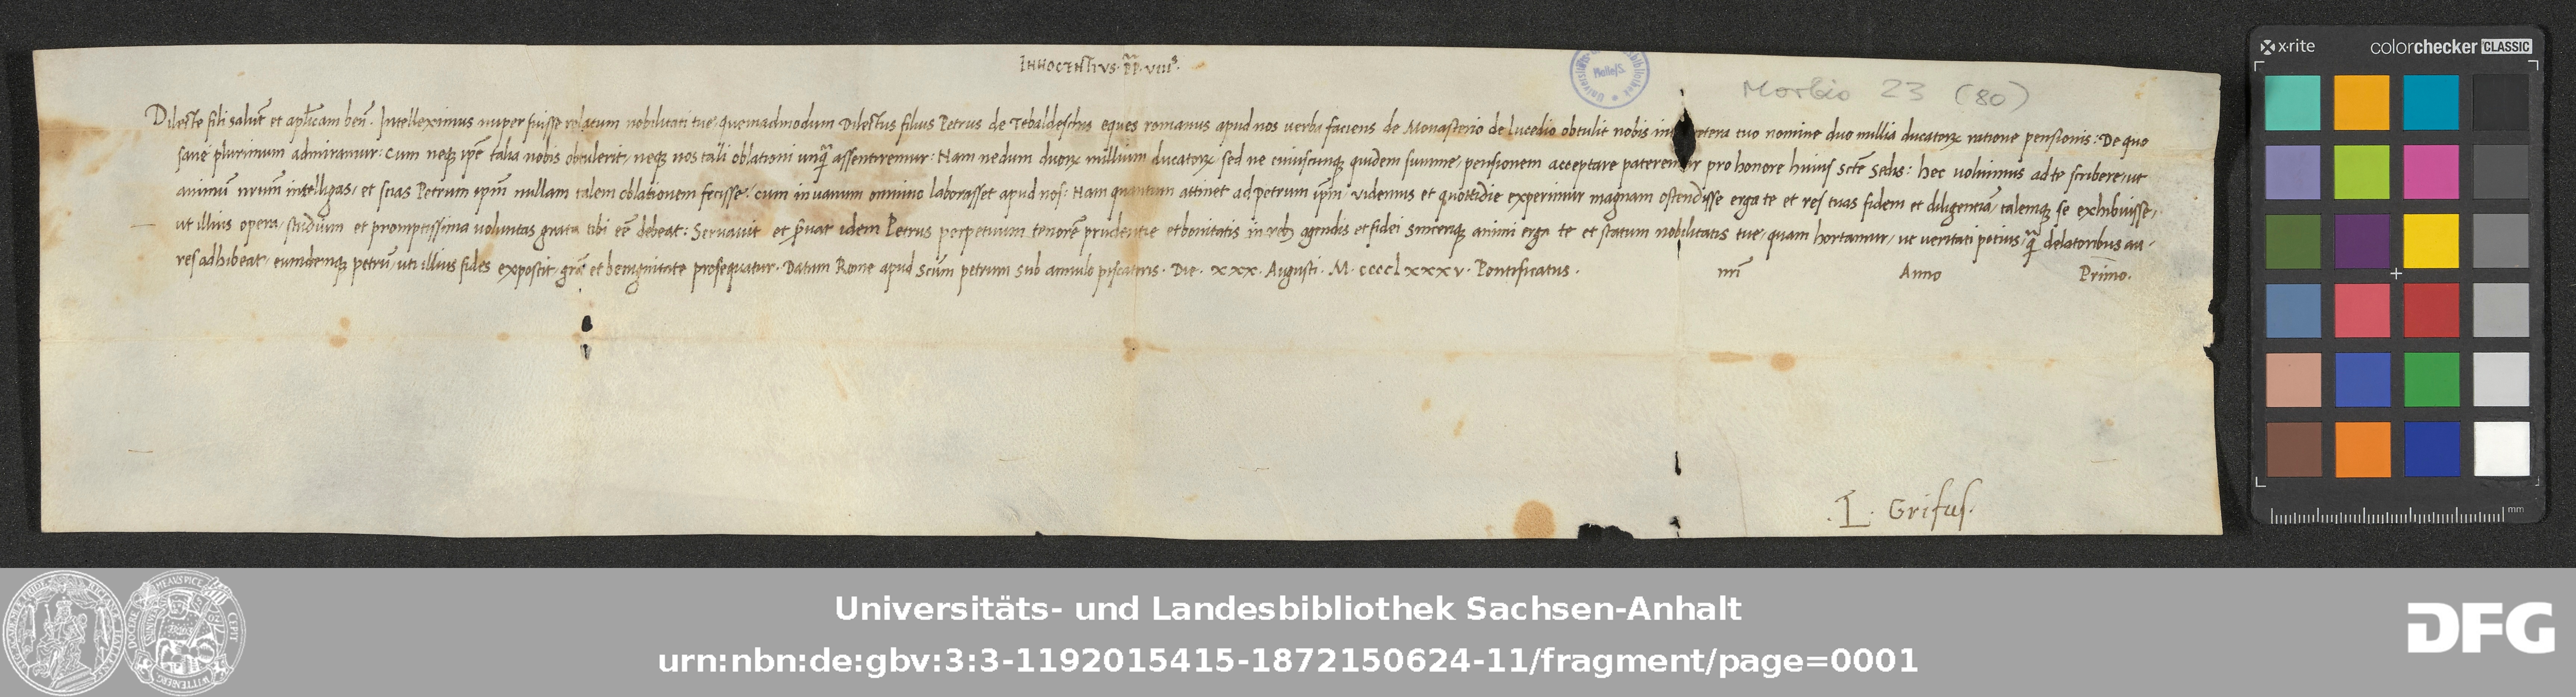 INNOCENTIVS · PP · VIIIˢ·
Universitäts bibliothek Halle/S.
Morbio 23 (80)
Dilecte fili salut̄ et aplicam ben̄. Intelleximus nuper fuisse relatum nobilitati tue, quemadmodum Dilectus filius Petrus de Tebaldeschis eques romanus apud nos verba faciens de Monasterio de lucedio obtulit nobis tuo nomine duo millia ducatoꝝ ratione pensionis: De quo
sane plurimum admiramur: cum neqꝫ ip̄e talia nobis obtulerit, neqꝫ nos tali oblationi unq̄ assentiremur: Nam nedum duoꝝ millium ducatoꝝ sed ne cuiuscunqꝫ quidem summe, pensionem acceptare pateremur pro honore huius sctē Sedis: hec uoluimus ad te scribere, ut
animū nrūm intelligas, et scias Petrum ip̄m nullam talem oblationem fecisse, cum in uanum omnino laborasset apud nos: Nam quantum attinet ad petrum ip̄m, videmus et quottidie experimur magnam ostendisse erga te et res tuas fidem et diligentiā, talemqꝫ se exhibuisse,
ut illius opera, studium et promptissima uoluntas grata tibi eē debeat: Servavit et ꝑuat idem Petrus perpetuum tenorē prudentie et bonitatis in rebꝫ agendis et fidei sinceriqꝫ animi erga te et statum nobilitatis tue, quam hortamur, ut veritati potius, q̄ delatoribus au-
res adhibeat, eumdemqꝫ petrū, uti illius fides exposcit, grā et benignitate prosequatur. Datum Rome apud Scūm petrum sub annulo piscatoris. Die. xxx. Augusti. M. cccclxxxv. Pontificatus. nrī Anno Primo.
.L. Grifus.
x-rite colorchecker CLASSIC
mm
Universitäts- und Landesbibliothek Sachsen-Anhalt
urn:nbn:de:gbv:3:3-1192015415-1872150624-11/fragment/page=0001
DFG